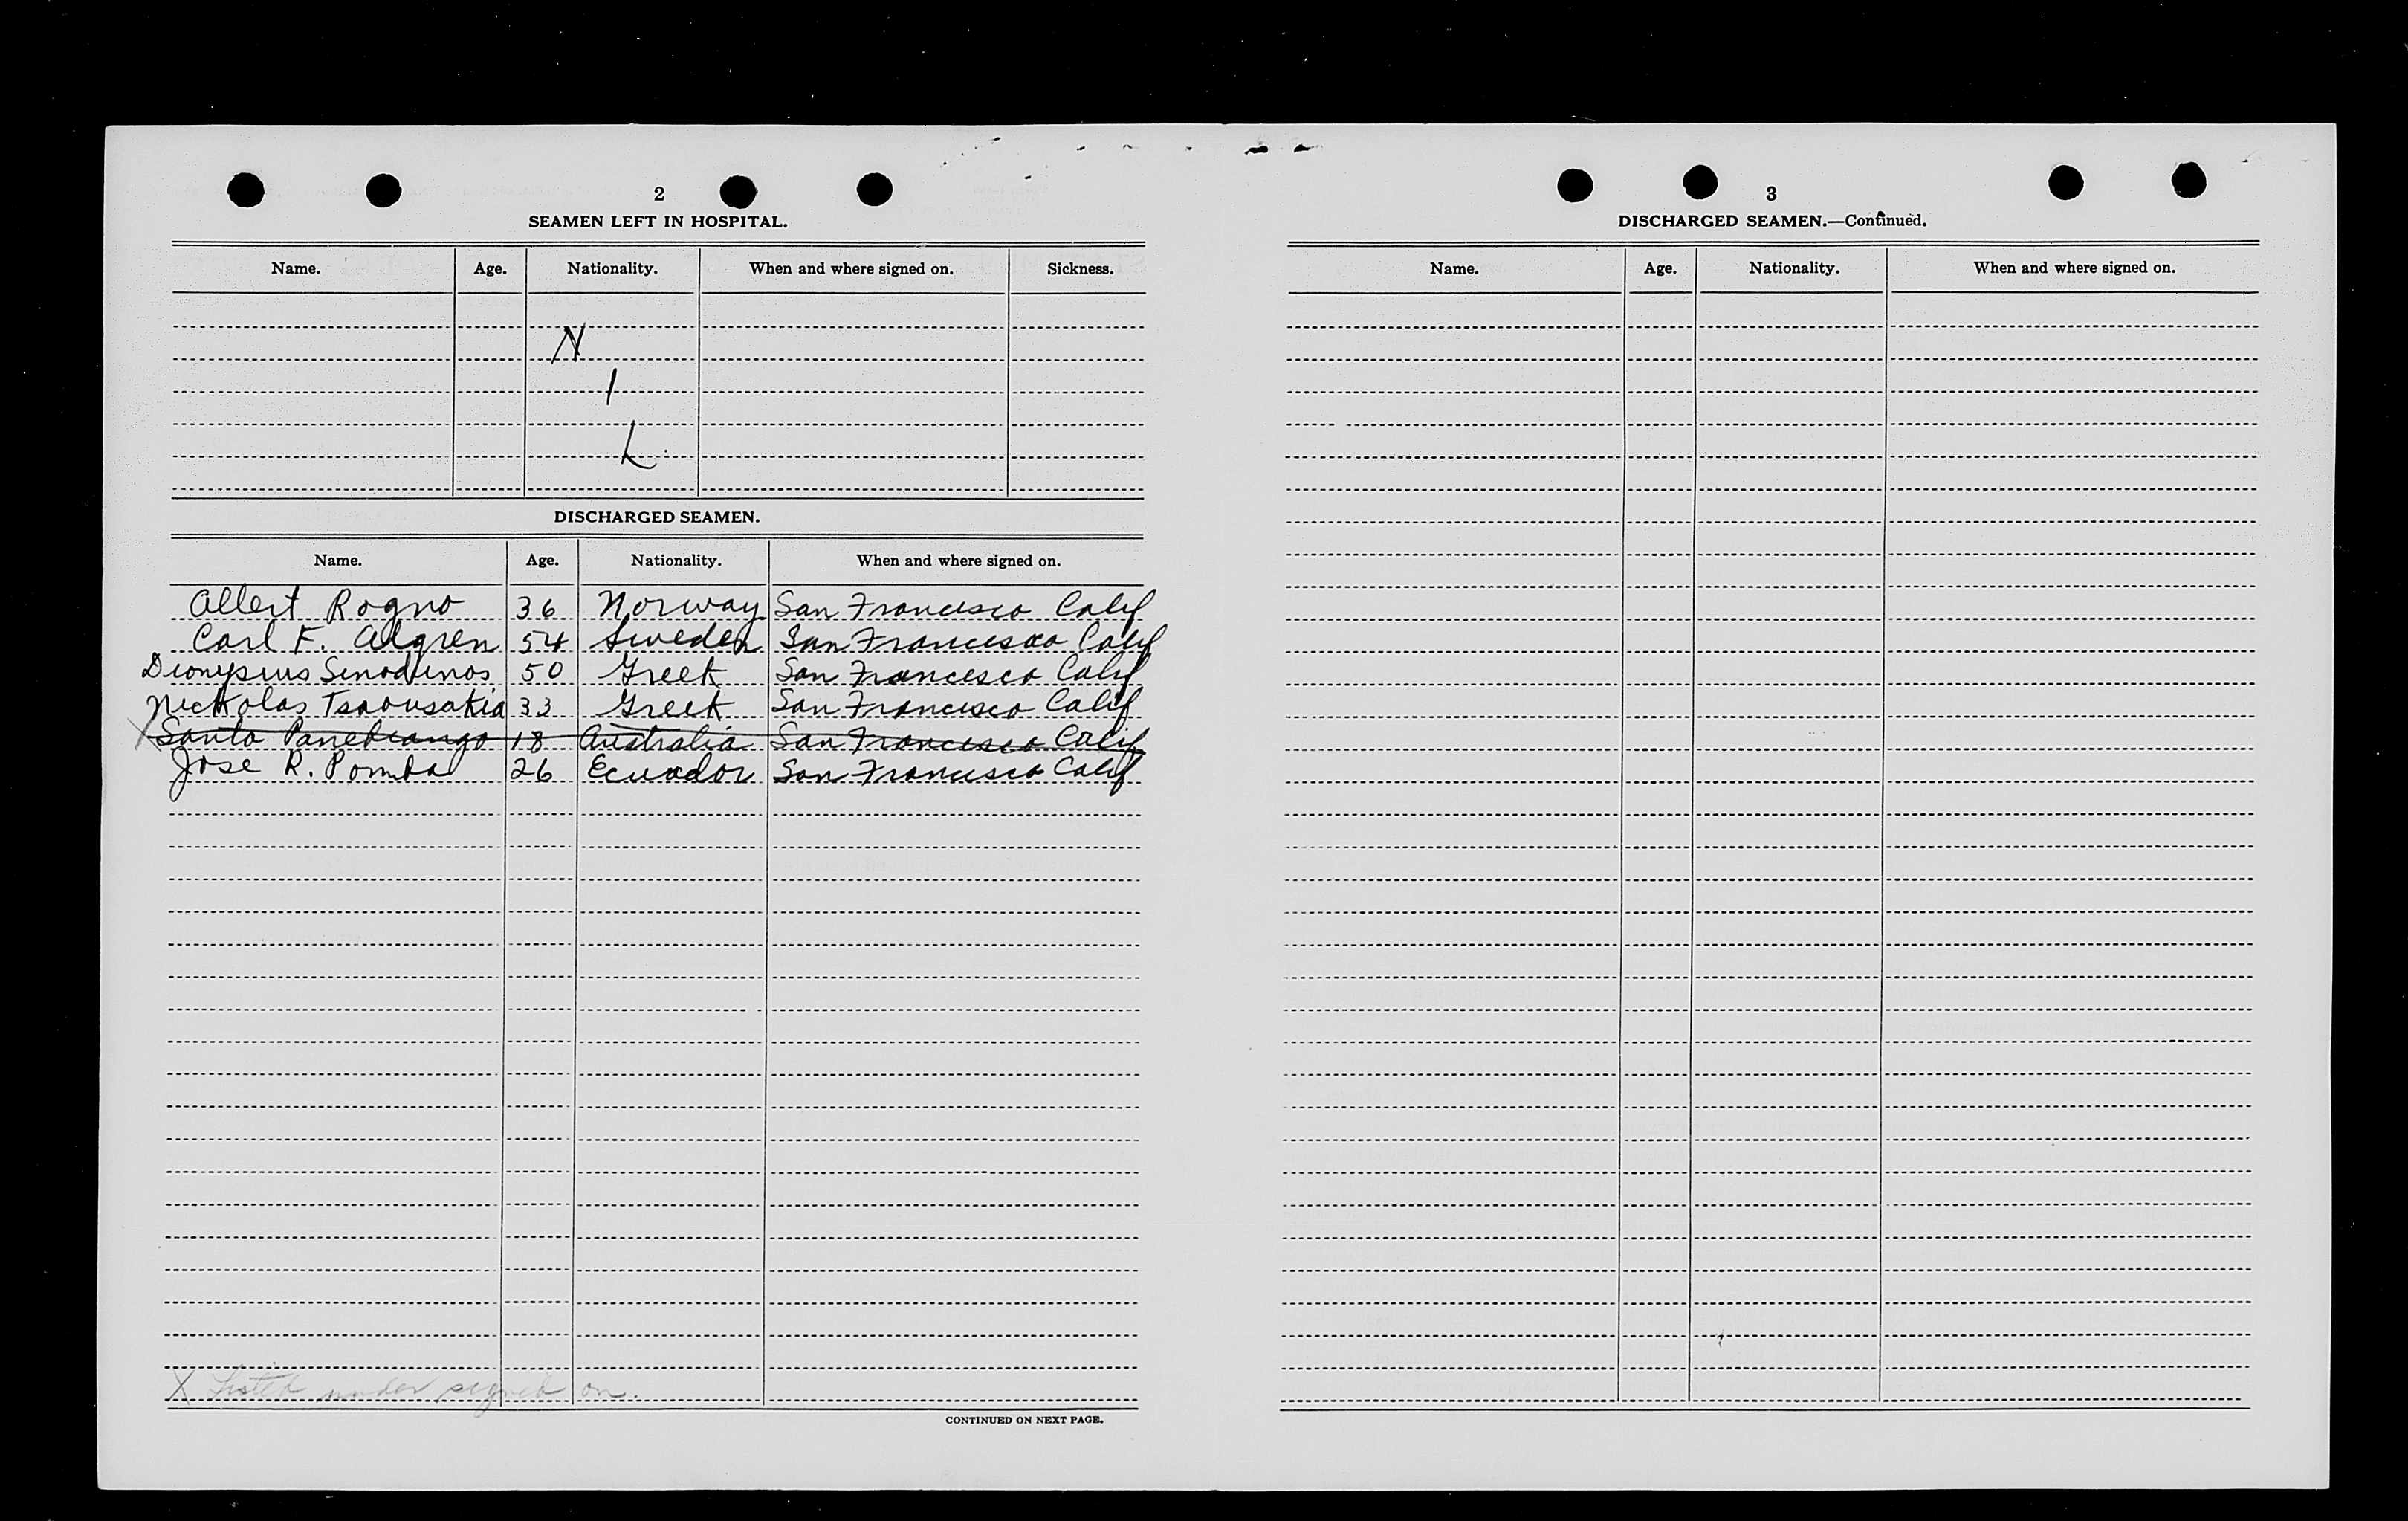 2
SEAMEN LEFT IN HOSPITAL.
Name. Age. Nationality. When and where signed on. Sickness.
N
I
L
DISCHARGED SEAMEN.
Name. Age. Nationality. When and where signed on.
Albert Rogno 36 Norway San Francisco Calif
Carl F. Algren 54 Sweden San Francisco Calif
Dionysius Sinodinos 50 Greek San Francisco Calif
Nickolas Tsaousakia 33 Greek San Francisco Calif
X Santo 18 Australia San Francisco Calif
Jose R. 26 Ecuador San Francisco Calif
X Listed under signed on.
CONTINUED ON NEXT PAGE.
3
DISCHARGED SEAMEN.—Continued.
Name. Age. Nationality. When and where signed on.